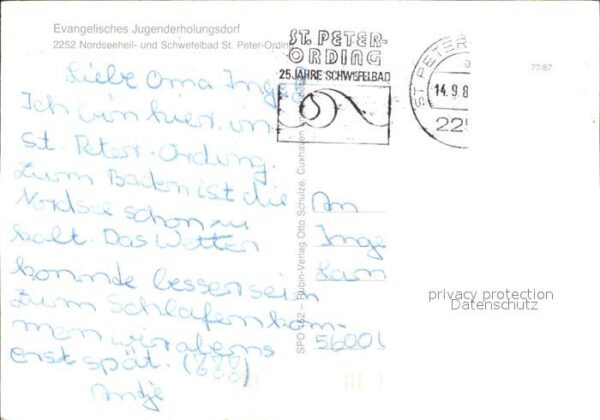 Evangelisches Jugenderholungsdorf
2252 Nordseeheil- und Schwefelbad St. Peter-Ording
ST. PETER-
ORDING
25 JAHRE SCHWEFELBAD
ST PETER-
a
14.9.8
225
77/87
Liebe Oma Inge!
Ich bin hier in
St. Peter-Ording.
Zum Baden ist die
Nordsee schon zu
kalt. Das Wetter
konnte besser sein
Zum Schlafen kom-
men wir abends
erst spät. (
Antje
SPO 152 – Rubin-Verlag Otto Schulze, Cuxhaven
An
Inge
Lan
5600
privacy protection
Datenschutz